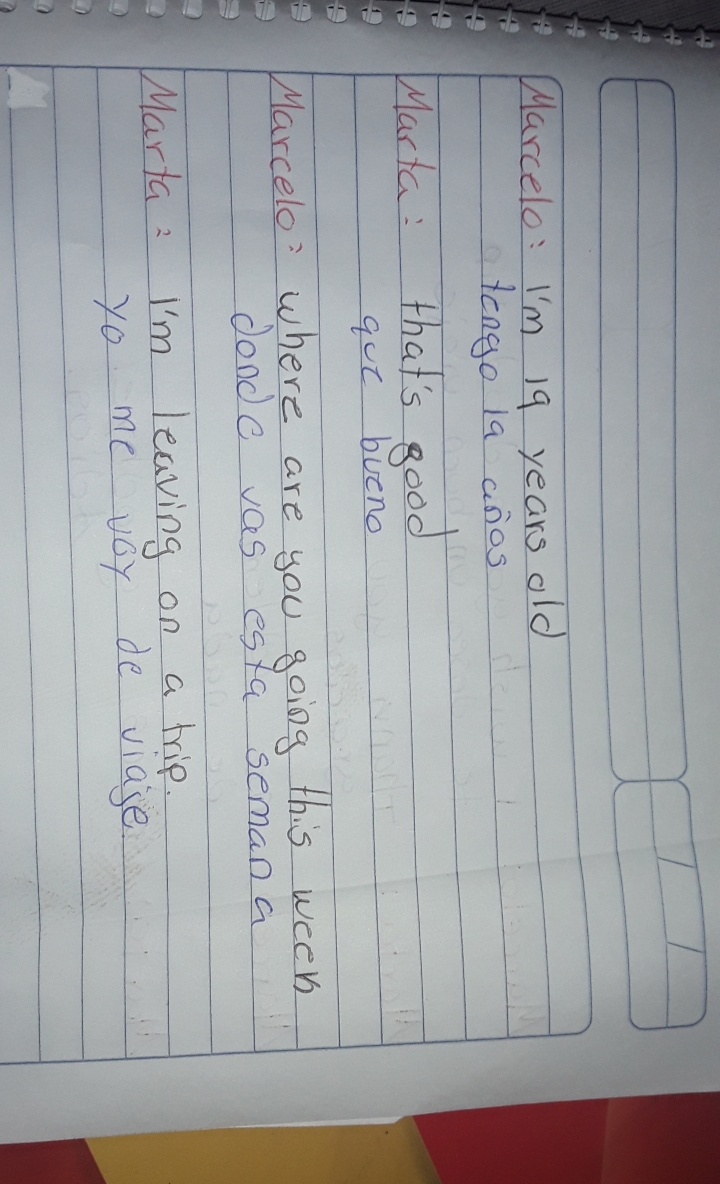 Marcelo: I'm 19 years old
tengo 19 años
Marta: that's good
que bueno
Marcelo: where are you going this week
donde vas esta semana
Marta: I'm leaving on a trip.
yo me voy de viaje